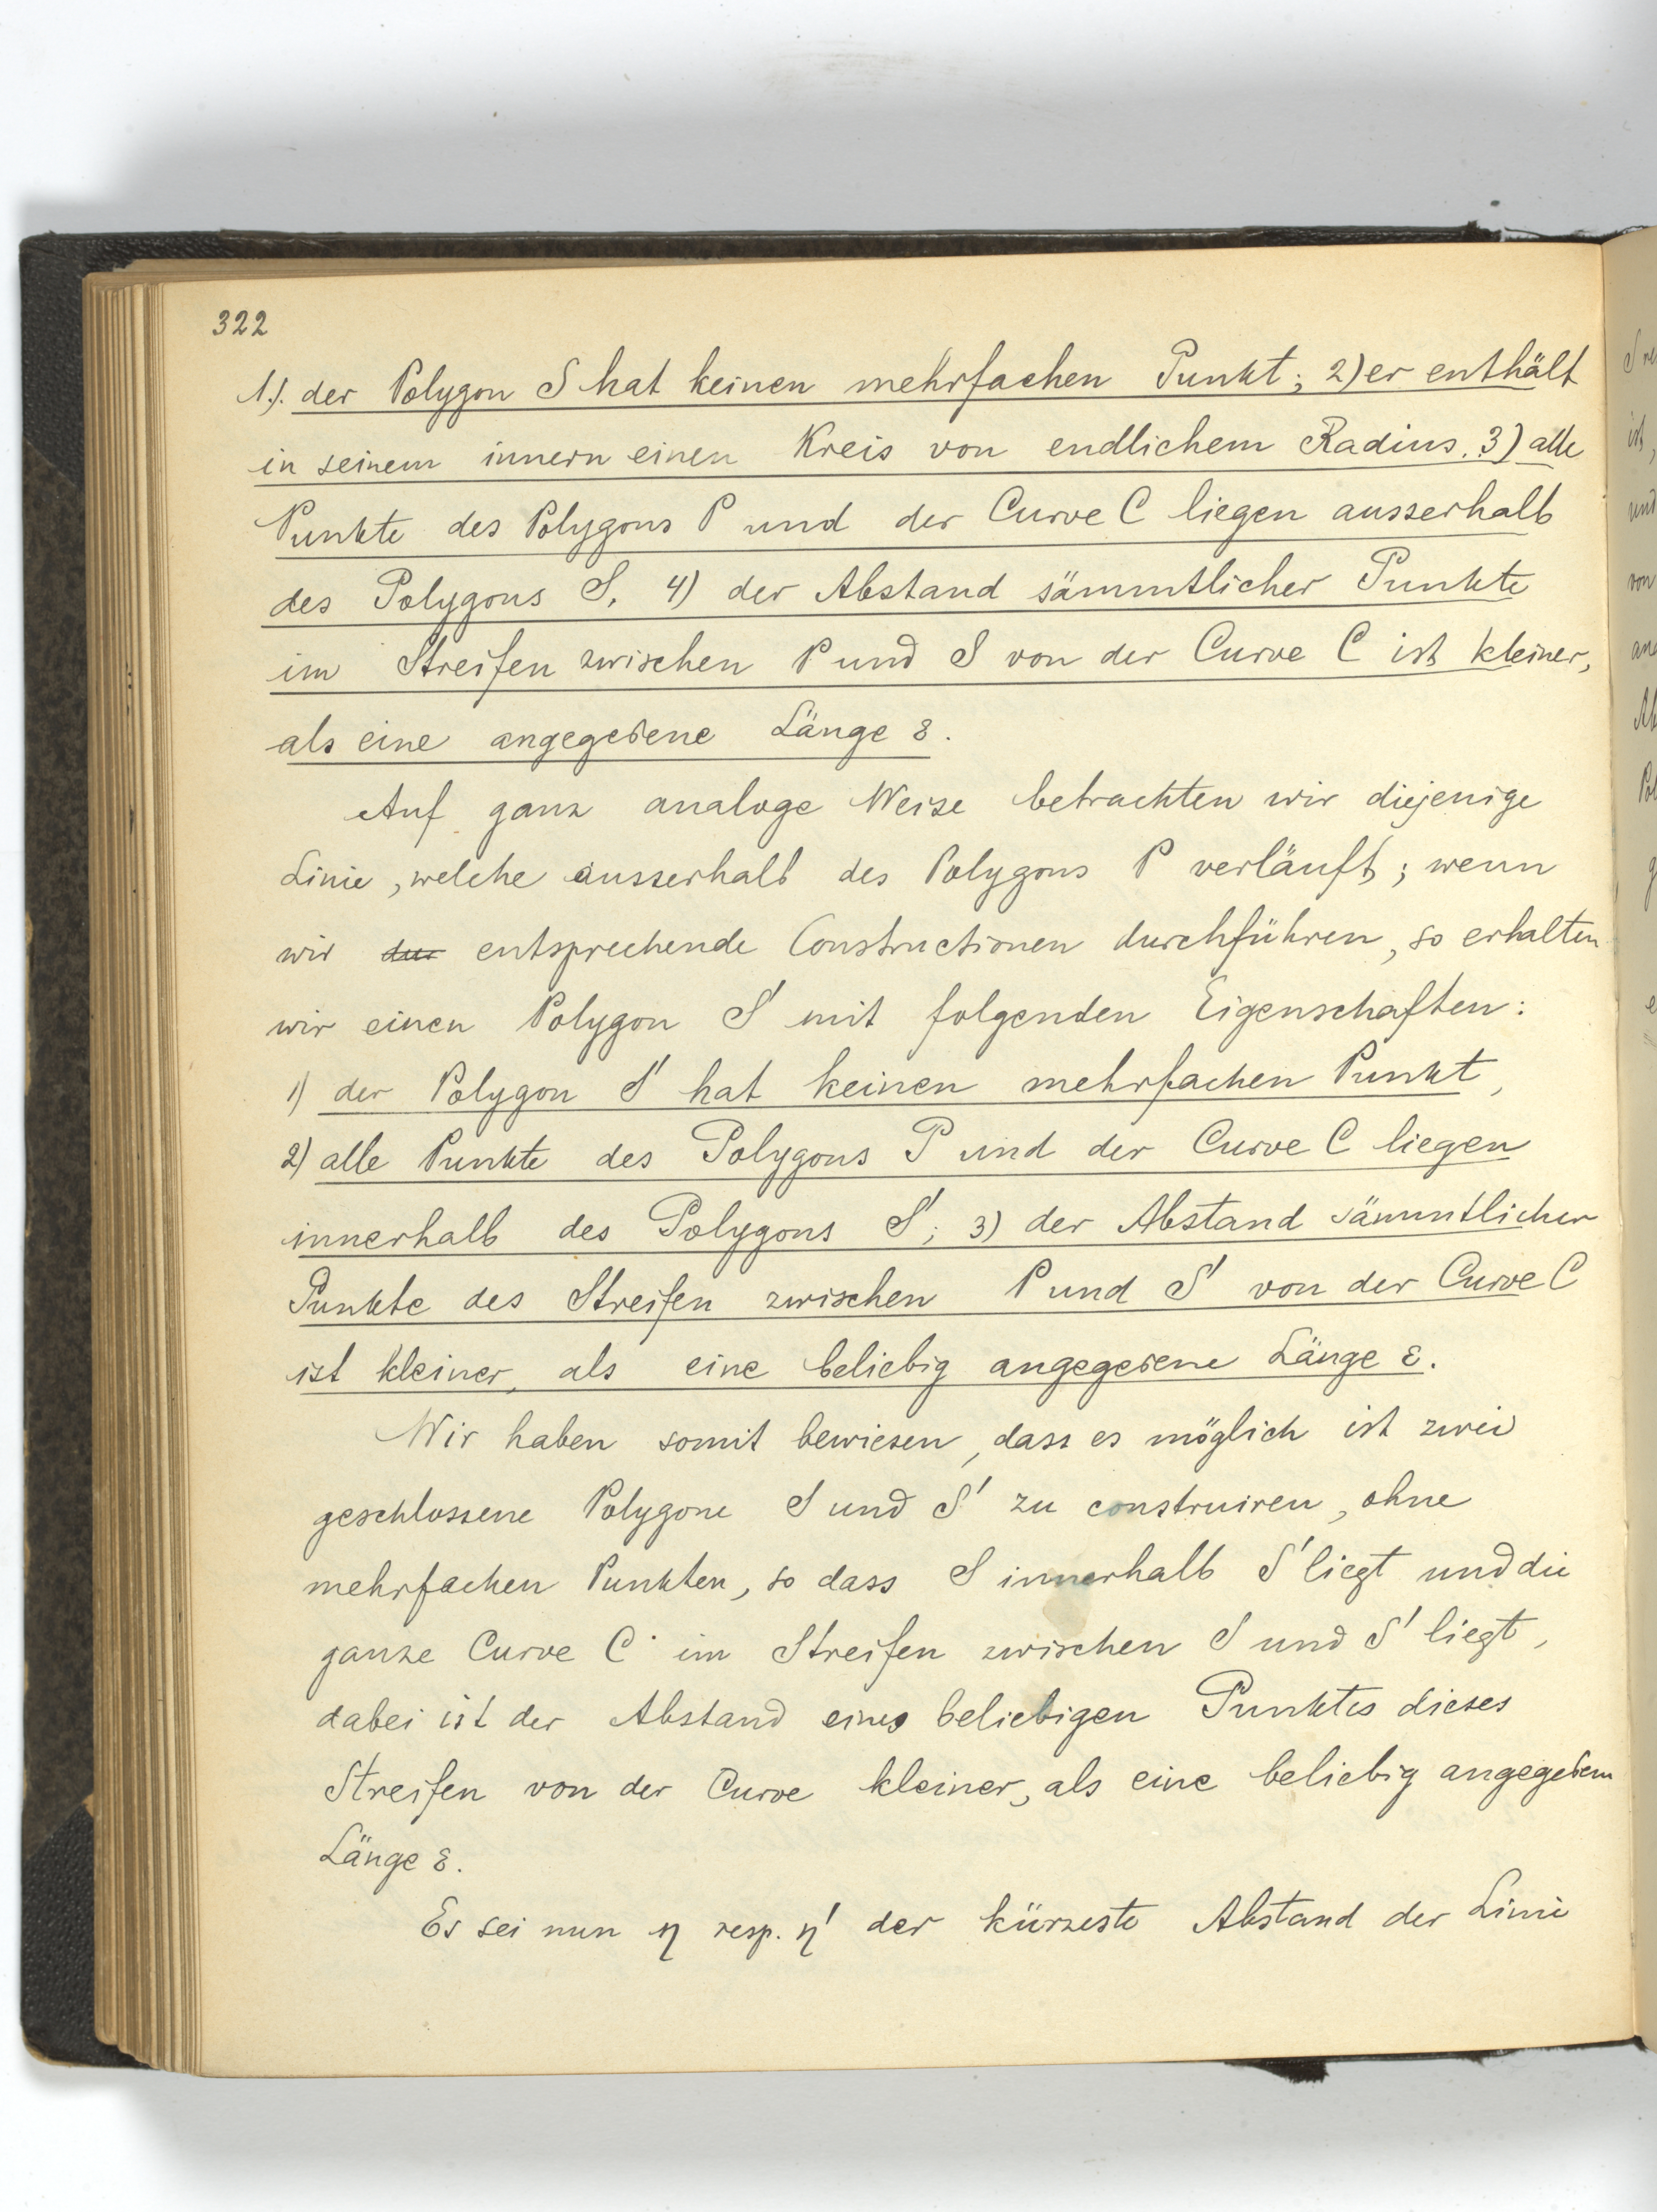 322
1.). der Polygon S hat keinen mehrfachen Punkt; 2) er enthält
in seinem innern einen Kreis von endlichem Radius. 3) alle
Punkte des Polygons P und der Curve C liegen ausserhalb
des Polygons S. 4) der Abstand sämmtlicher Punkte
im Streifen zwischen P und S von der Curve C ist kleiner,
als eine angegebene Länge ε.
Auf ganz analoge Weise betrachten wir diejenige
Linie, welche ausserhalb des Polygons P verläuft; wenn
wir entsprechende Constructionen durchführen, so erhalten
wir einen Polygon S' mit folgenden Eigenschaften:
1) der Polygon S' hat keinen mehrfachen Punkt,
2) alle Punkte des Polygons P und der Curve C liegen
innerhalb des Polygons S'; 3) der Abstand sämmtlicher
Punkte des Streifen zwischen P und S' von der Curve C
ist kleiner, als eine beliebig angegebene Länge ε.
Wir haben somit bewiesen, dass es möglich ist zwei
geschlossene Polygone S und S' zu construiren, ohne
mehrfachen Punkten, so dass S innerhalb S' liegt und die
ganze Curve C im Streifen zwischen S und S' liegt,
dabei ist der Abstand eines beliebigen Punktes dieses
Streifen von der Curve kleiner, als eine beliebig angegebene
Länge ε.
Es sei nun η resp. η' der kürzeste Abstand der Linie